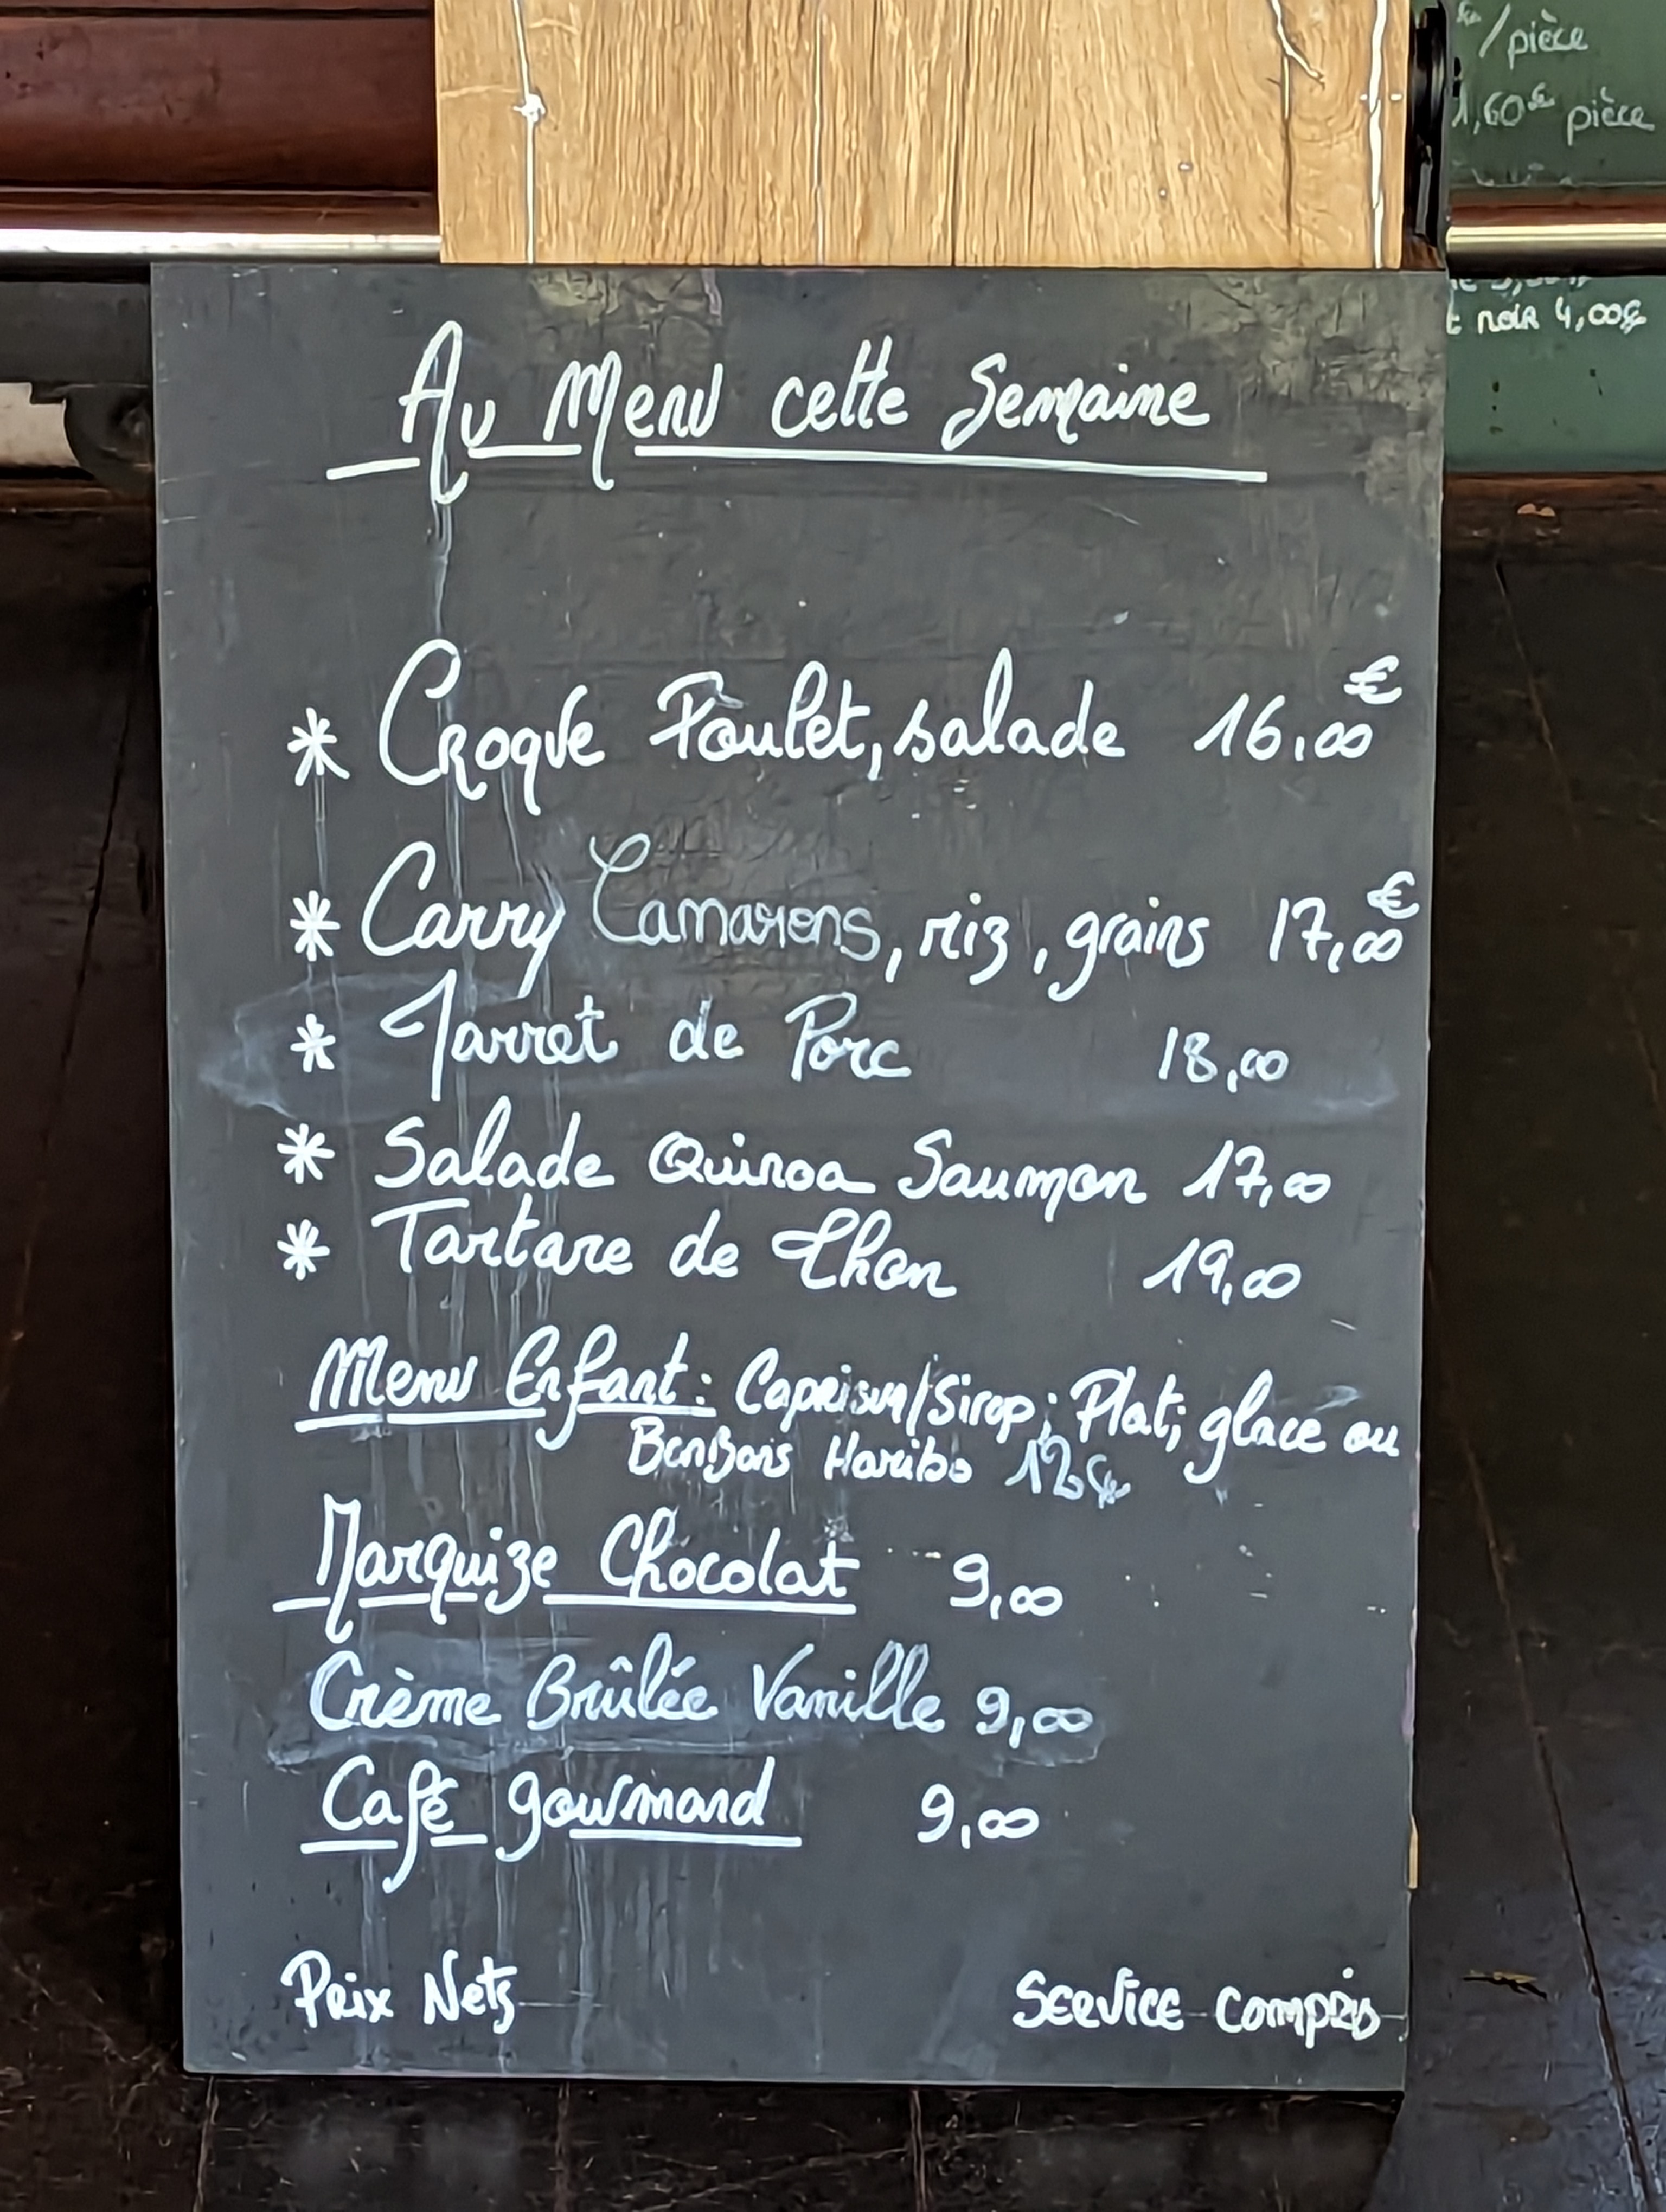 €/pièce
1,60€ pièce
noir 4,00€
Au Menu cette Semaine
* Croque Poulet, salade 16,00€
* Carry Camarons, riz, grains 17,00€
* Jarret de Porc 18,00
* Salade Quinoa Saumon 17,00
* Tartare de Thon 19,00
Menu Enfant: Caprisun/Sirop; Plat; glace ou
BonBons Haribo 12€
Marquize Chocolat 9,00
Crème Brûlée Vanille 9,00
Café gourmand 9,00
Prix Nets
Service compris